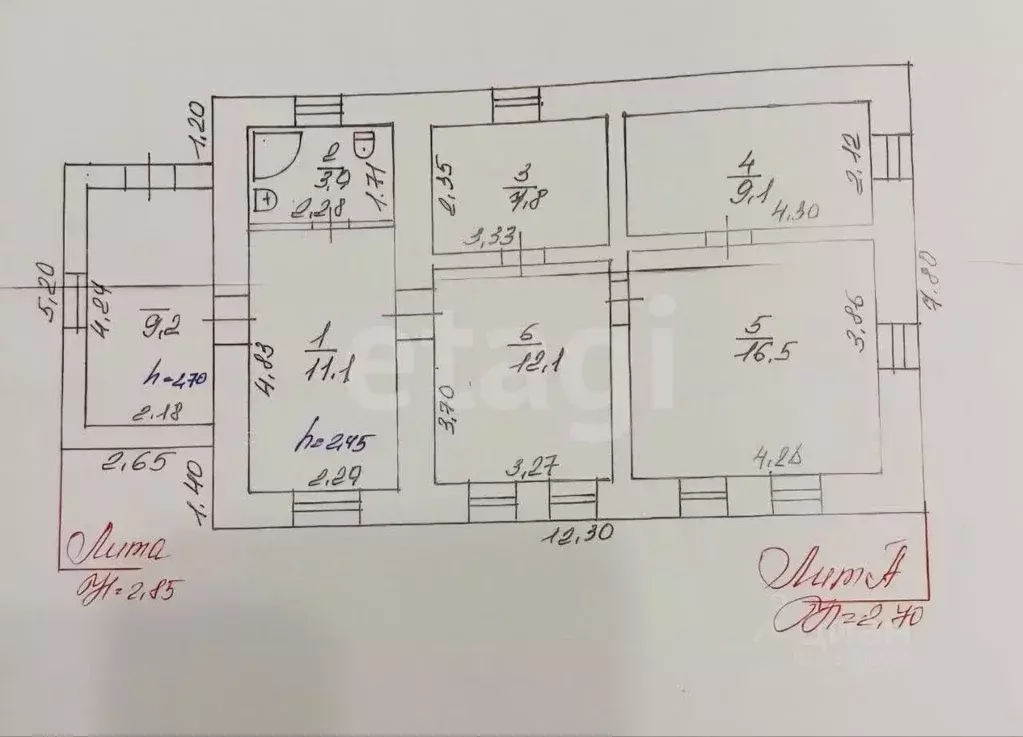 1,20
2
3,9
1.71
2,28
2,35
3
7,8
3,33
4
9,1
2,12
4,30
5,20
4,24
9,2
h=2,70
2.18
2,65
1.40
4,83
1
11.1
h=2,45
2,29
3,70
6
12,1
3,27
5
16,5
3,86
4,28
7,80
12,30
etagi
Лит а
H=2,85
Лит А
H=2,70